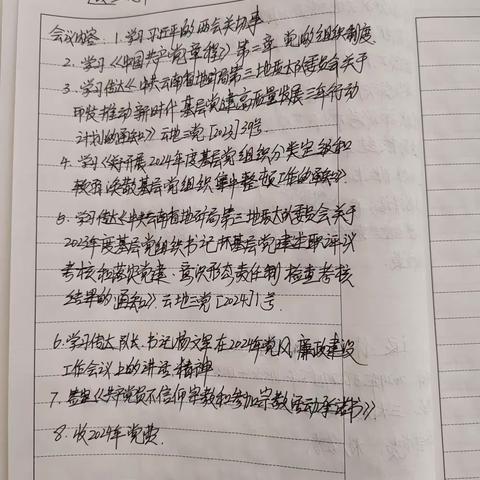 会议内容: 1. 学习习近平的两会关切事
2. 学习《中国共产党章程》第二章 党的组织制度
3. 学习传达《中共云南省地矿局第三地质大队委员会关于
印发推动新时代基层党建高质量发展三年行动
计划的通知》云地三党[2023]39号
4. 学习《关于开展2024年度基层党组织分类定级和
软弱涣散基层党组织集中整顿工作的通知》
5. 学习传达《中共云南省地矿局第三地质大队委员会关于
2023年度基层党组织书记抓基层党建述职评议
考核和落实党建、意识形态责任制检查考核
结果的通知》云地三党[2024]1号
6. 学习传达队长、书记杨文军在2024年党风廉政建设
工作会议上的讲话精神
7. 签定《共产党员不信仰宗教和参加宗教活动承诺书》.
8. 收2024年党费.